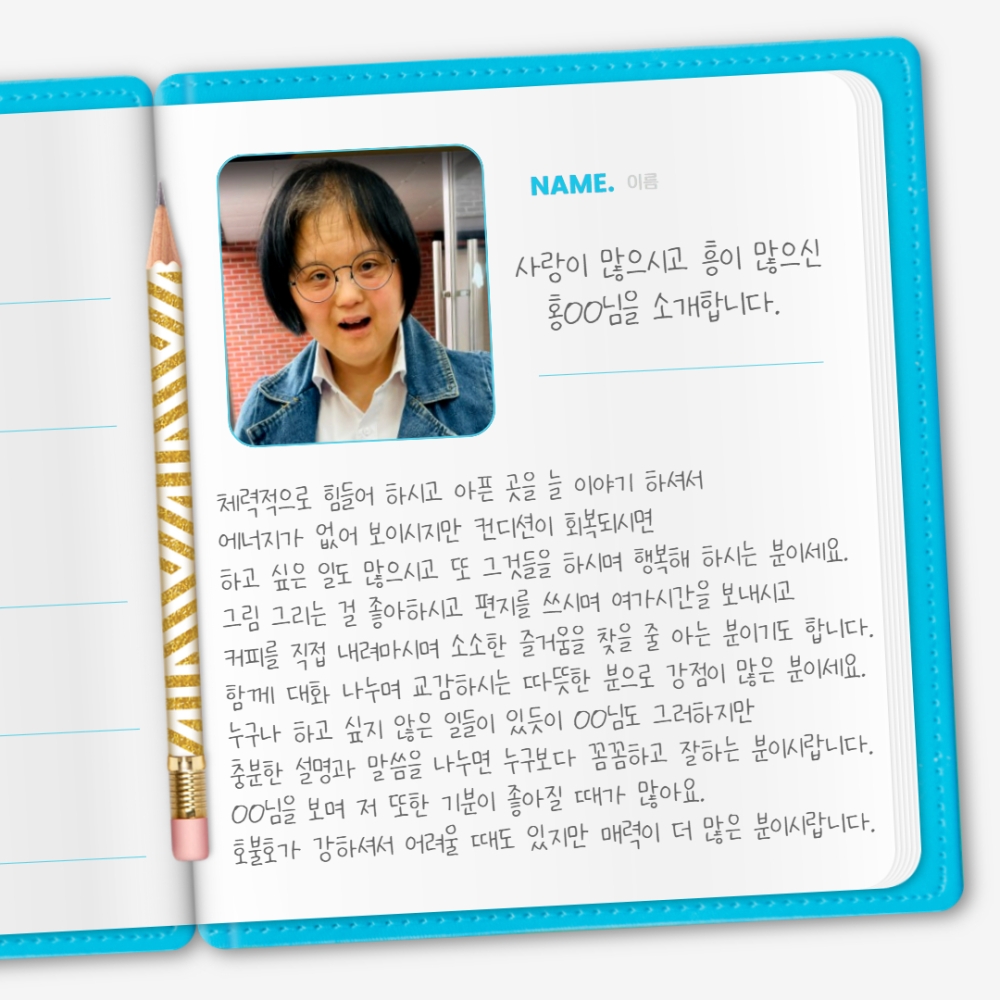 NAME. 이름
사랑이 많으시고 흥이 많으신
홍OO님을 소개합니다.
체력적으로 힘들어 하시고 아픈 곳을 늘 이야기 하셔서
에너지가 없어 보이시지만 컨디션이 회복되시면
하고 싶은 일도 많으시고 또 그것들을 하시며 행복해 하시는 분이세요.
그림 그리는 걸 좋아하시고 편지를 쓰시며 여가시간을 보내시고
커피를 직접 내려마시며 소소한 즐거움을 찾을 줄 아는 분이기도 합니다.
함께 대화 나누며 교감하시는 따뜻한 분으로 강점이 많은 분이세요.
누구나 하고 싶지 않은 일들이 있듯이 OO님도 그러하지만
충분한 설명과 말씀을 나누면 누구보다 꼼꼼하고 잘하는 분이시랍니다.
OO님을 보며 저 또한 기분이 좋아질 때가 많아요.
호불호가 강하셔서 어려울 때도 있지만 매력이 더 많은 분이시랍니다.